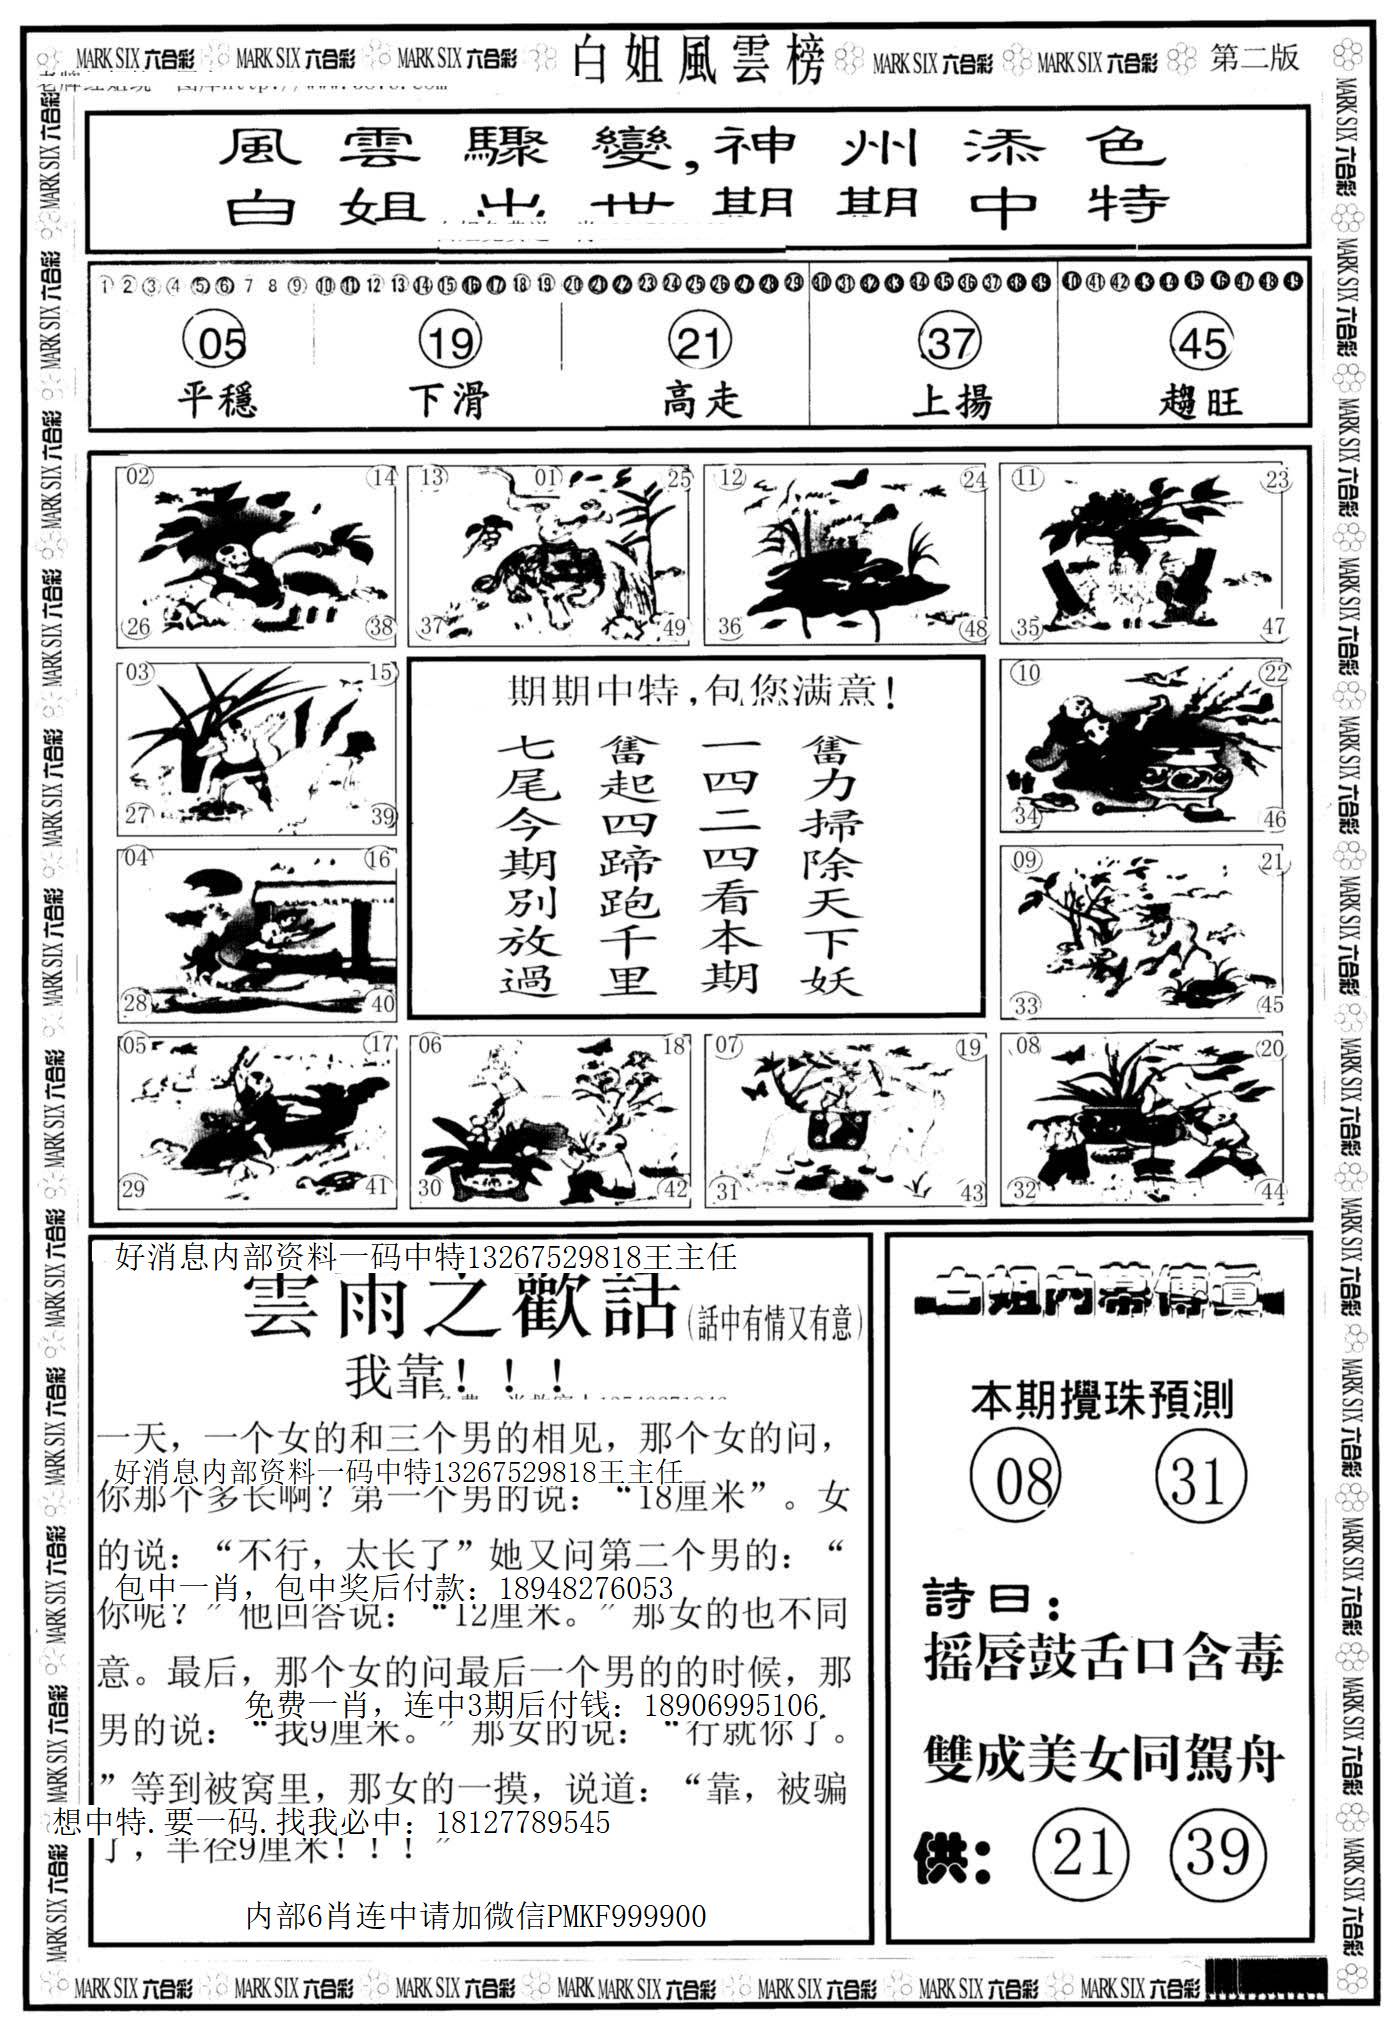 MARK SIX 六合彩 MARK SIX 六合彩 MARK SIX 六合彩 白姐風雲榜 MARK SIX 六合彩 MARK SIX 六合彩 第二版
風雲驟變,神州添色
白姐出世期期中特
1 2 3 4 5 6 7 8 9 10 11 12 13 14 15 16 17 18 19 20 21 22 23 24 25 26 27 28 29 30 31 32 33 34 35 36 37 38 39 40 41 42 43 44 45 46 47 48 49
05 19 21 37 45
平穩 下滑 高走 上揚 趨旺
02 14 13 01 25 12 24 11 23
26 38 37 49 36 48 35 47
03 15 10 22
27 39 34 46
04 16 09 21
28 40 33 45
05 17 06 18 07 19 08 20
29 41 30 42 31 43 32 44
期期中特,包您满意!
奮力掃除天下妖
一四二四看本期
奮起四蹄跑千里
七尾今期別放過
好消息内部资料一码中特13267529818王主任
雲雨之歡話(話中有情又有意)
我靠!!!
一天，一个女的和三个男的相见，那个女的问，
好消息内部资料一码中特13267529818王主任
你那个多长啊？第一个男的说：“18厘米”。女
的说：“不行，太长了”她又问第二个男的：“
包中一肖，包中奖后付款：18948276053
你呢？”他回答说：“12厘米。”那女的也不同
意。最后，那个女的问最后一个男的的时候，那
免费一肖，连中3期后付钱：18906995106
男的说：“我9厘米。”那女的说：“行就你了。
”等到被窝里，那女的一摸，说道：“靠，被骗
想中特.要一码.找我必中：18127789545
了，半径9厘米！！！”
内部6肖连中请加微信PMKF999900
白姐内幕傳真
本期攪珠預測
08 31
詩曰：
摇唇鼓舌口含毒
雙成美女同駕舟
供：21 39
MARK SIX 六合彩 MARK SIX 六合彩 MARK SIX 六合彩 MARK MARK SIX 六合彩 MARK SIX 六合彩 MARK SIX 六合彩